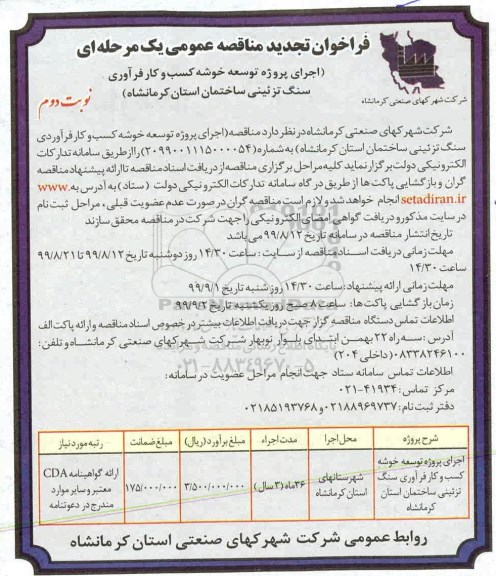 فراخوان تجدید مناقصه عمومی یک مرحله ای
(اجرای پروژه توسعه خوشه کسب و کار فرآوری
سنگ تزئینی ساختمان استان کرمانشاه)
نوبت دوم
شرکت شهرکهای صنعتی کرمانشاه
شرکت شهرکهای صنعتی کرمانشاه در نظر دارد مناقصه (اجرای پروژه توسعه خوشه کسب و کار فرآوردی
سنگ تزئینی ساختمان استان کرمانشاه) به شماره (2099001115000054) را از طریق سامانه تدارکات
الکترونیکی دولت برگزار نماید. کلیه مراحل برگزاری مناقصه از دریافت اسناد مناقصه تا ارائه پیشنهاد مناقصه
گران و بازگشایی پاکت ها از طریق درگاه سامانه تدارکات الکترونیکی دولت (ستاد) به آدرس به www.
setadiran.ir انجام خواهد شد و لازم است مناقصه گران در صورت عدم عضویت قبلی، مراحل ثبت نام
در سایت مذکور و دریافت گواهی امضای الکترونیکی را جهت شرکت در مناقصه محقق سازند
تاریخ انتشار مناقصه در سامانه تاریخ ۹۹/۸/۱۲ می باشد
مهلت زمانی دریافت اسناد مناقصه از سایت: ساعت ۱۴/۳۰ روز دوشنبه تاریخ ۹۹/۸/۱۲ تا ۹۹/۸/۲۱
ساعت ۱۴/۳۰
مهلت زمانی ارائه پیشنهاد: ساعت ۱۴/۳۰ روز شنبه تاریخ ۹۹/۹/۱
زمان بازگشایی پاکت ها: ساعت ۸ صبح روز یکشنبه تاریخ ۹۹/۹/۲
اطلاعات تماس دستگاه مناقصه گزار جهت دریافت اطلاعات بیشتر در خصوص اسناد مناقصه و ارائه پاکت الف
آدرس: سه راه ۲۲ بهمن ابتدای بلوار نوبهار شرکت شهرکهای صنعتی کرمانشاه و تلفن:
۰۸۳۳۸۲۴۶۱۰۰ (داخلی ۲۰۴)
اطلاعات تماس سامانه ستاد جهت انجام مراحل عضویت در سامانه:
مرکز تماس: ۴۱۹۳۴-۰۲۱
دفتر ثبت نام: ۰۲۱۸۸۹۶۹۷۳۷ و ۰۲۱۸۵۱۹۳۷۶۸
۰۲۱-۸۸۳۴۹۶۷۰-۵
شرح پروژه محل اجرا مدت اجراء مبلغ برآورد (ریال) مبلغ ضمانت رتبه مورد نیاز
اجرای پروژه توسعه خوشه
کسب و کار فرآوری سنگ
تزئینی ساختمان استان
کرمانشاه
شهرستانهای
استان کرمانشاه
۳۶ماه (۳ سال)
۳/۵۰۰/۰۰۰/۰۰۰
۱۷۵/۰۰۰/۰۰۰
ارائه گواهینامه CDA
معتبر و سایر موارد
مندرج در دعوتنامه
روابط عمومی شرکت شهرکهای صنعتی استان کرمانشاه